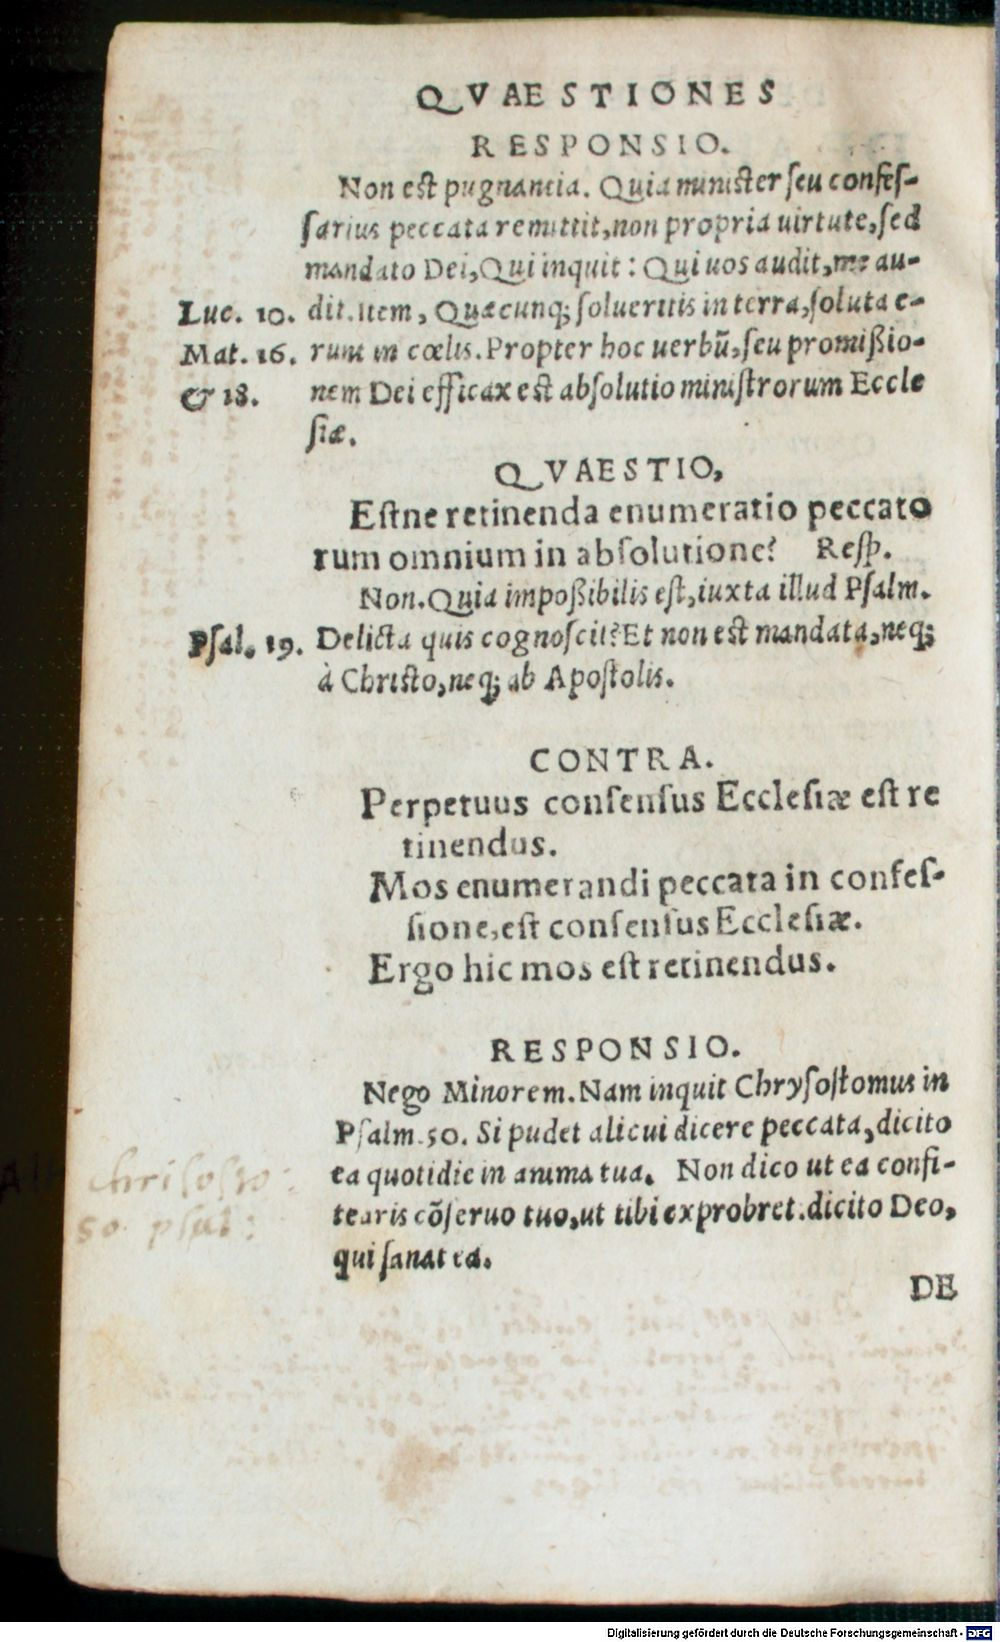 QVAESTIONES
RESPONSIO.
Non est pugnantia. Quia minister ſeu confeſ-
ſarius peccata remittit, non propria uirtute, ſed
mandato Dei, Qui inquit: Qui uos audit, me au-
Luc. 10. dit. Item, Quæcunq; ſolueritis in terra, ſoluta e-
Mat. 16. runt in cœlis. Propter hoc uerbũ, ſeu promißio-
& 18. nem Dei efficax est abſolutio miniſtrorum Eccle
ſiæ.
QVAESTIO,
Eſtne retinenda enumeratio peccato
rum omnium in abſolutione? Reſp.
Non. Quia impoßibilis eſt, iuxta illud Pſalm.
Pſal. 19. Delicta quis cognoſcit? Et non est mandata, neq;
à Chriſto, neq; ab Apoſtolis.
CONTRA.
Perpetuus conſenſus Eccleſiæ eſt re
tinendus.
Mos enumerandi peccata in confeſ-
ſione, eſt conſenſus Eccleſiæ.
Ergo hic mos eſt retinendus.
RESPONSIO.
Nego Minorem. Nam inquit Chryſoſtomus in
Pſalm. 50. Si pudet alicui dicere peccata, dicito
ea quotidie in anima tua. Non dico ut ea confi-
tearis cõſeruo tuo, ut tibi exprobret. dicito Deo,
qui ſanat ea.
DE
chriſoſto:
50. pſal:
Digitalisierung gefördert durch die Deutsche Forschungsgemeinschaft - DFG